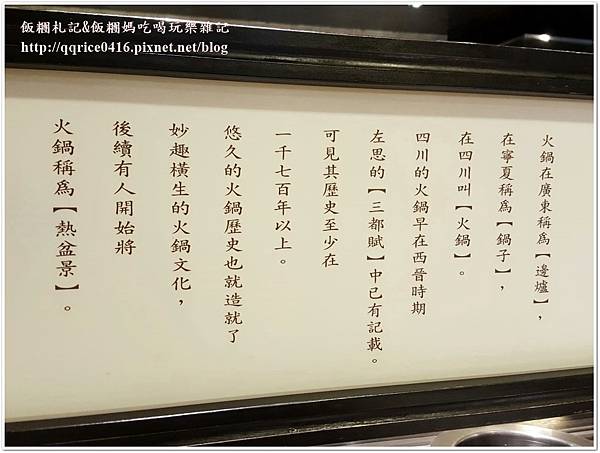 飯糰札記&飯糰媽吃喝玩樂雜記
http://qqrice0416.pixnet.net/blog
火鍋在廣東稱為【邊爐】，
在寧夏稱為【鍋子】，
在四川叫【火鍋】。
四川的火鍋早在西晉時期
左思的【三都賦】中已有記載。
可見其歷史至少在
一千七百年以上。
悠久的火鍋歷史也就造就了
妙趣橫生的火鍋文化，
後續有人開始將
火鍋稱為【熱盆景】。